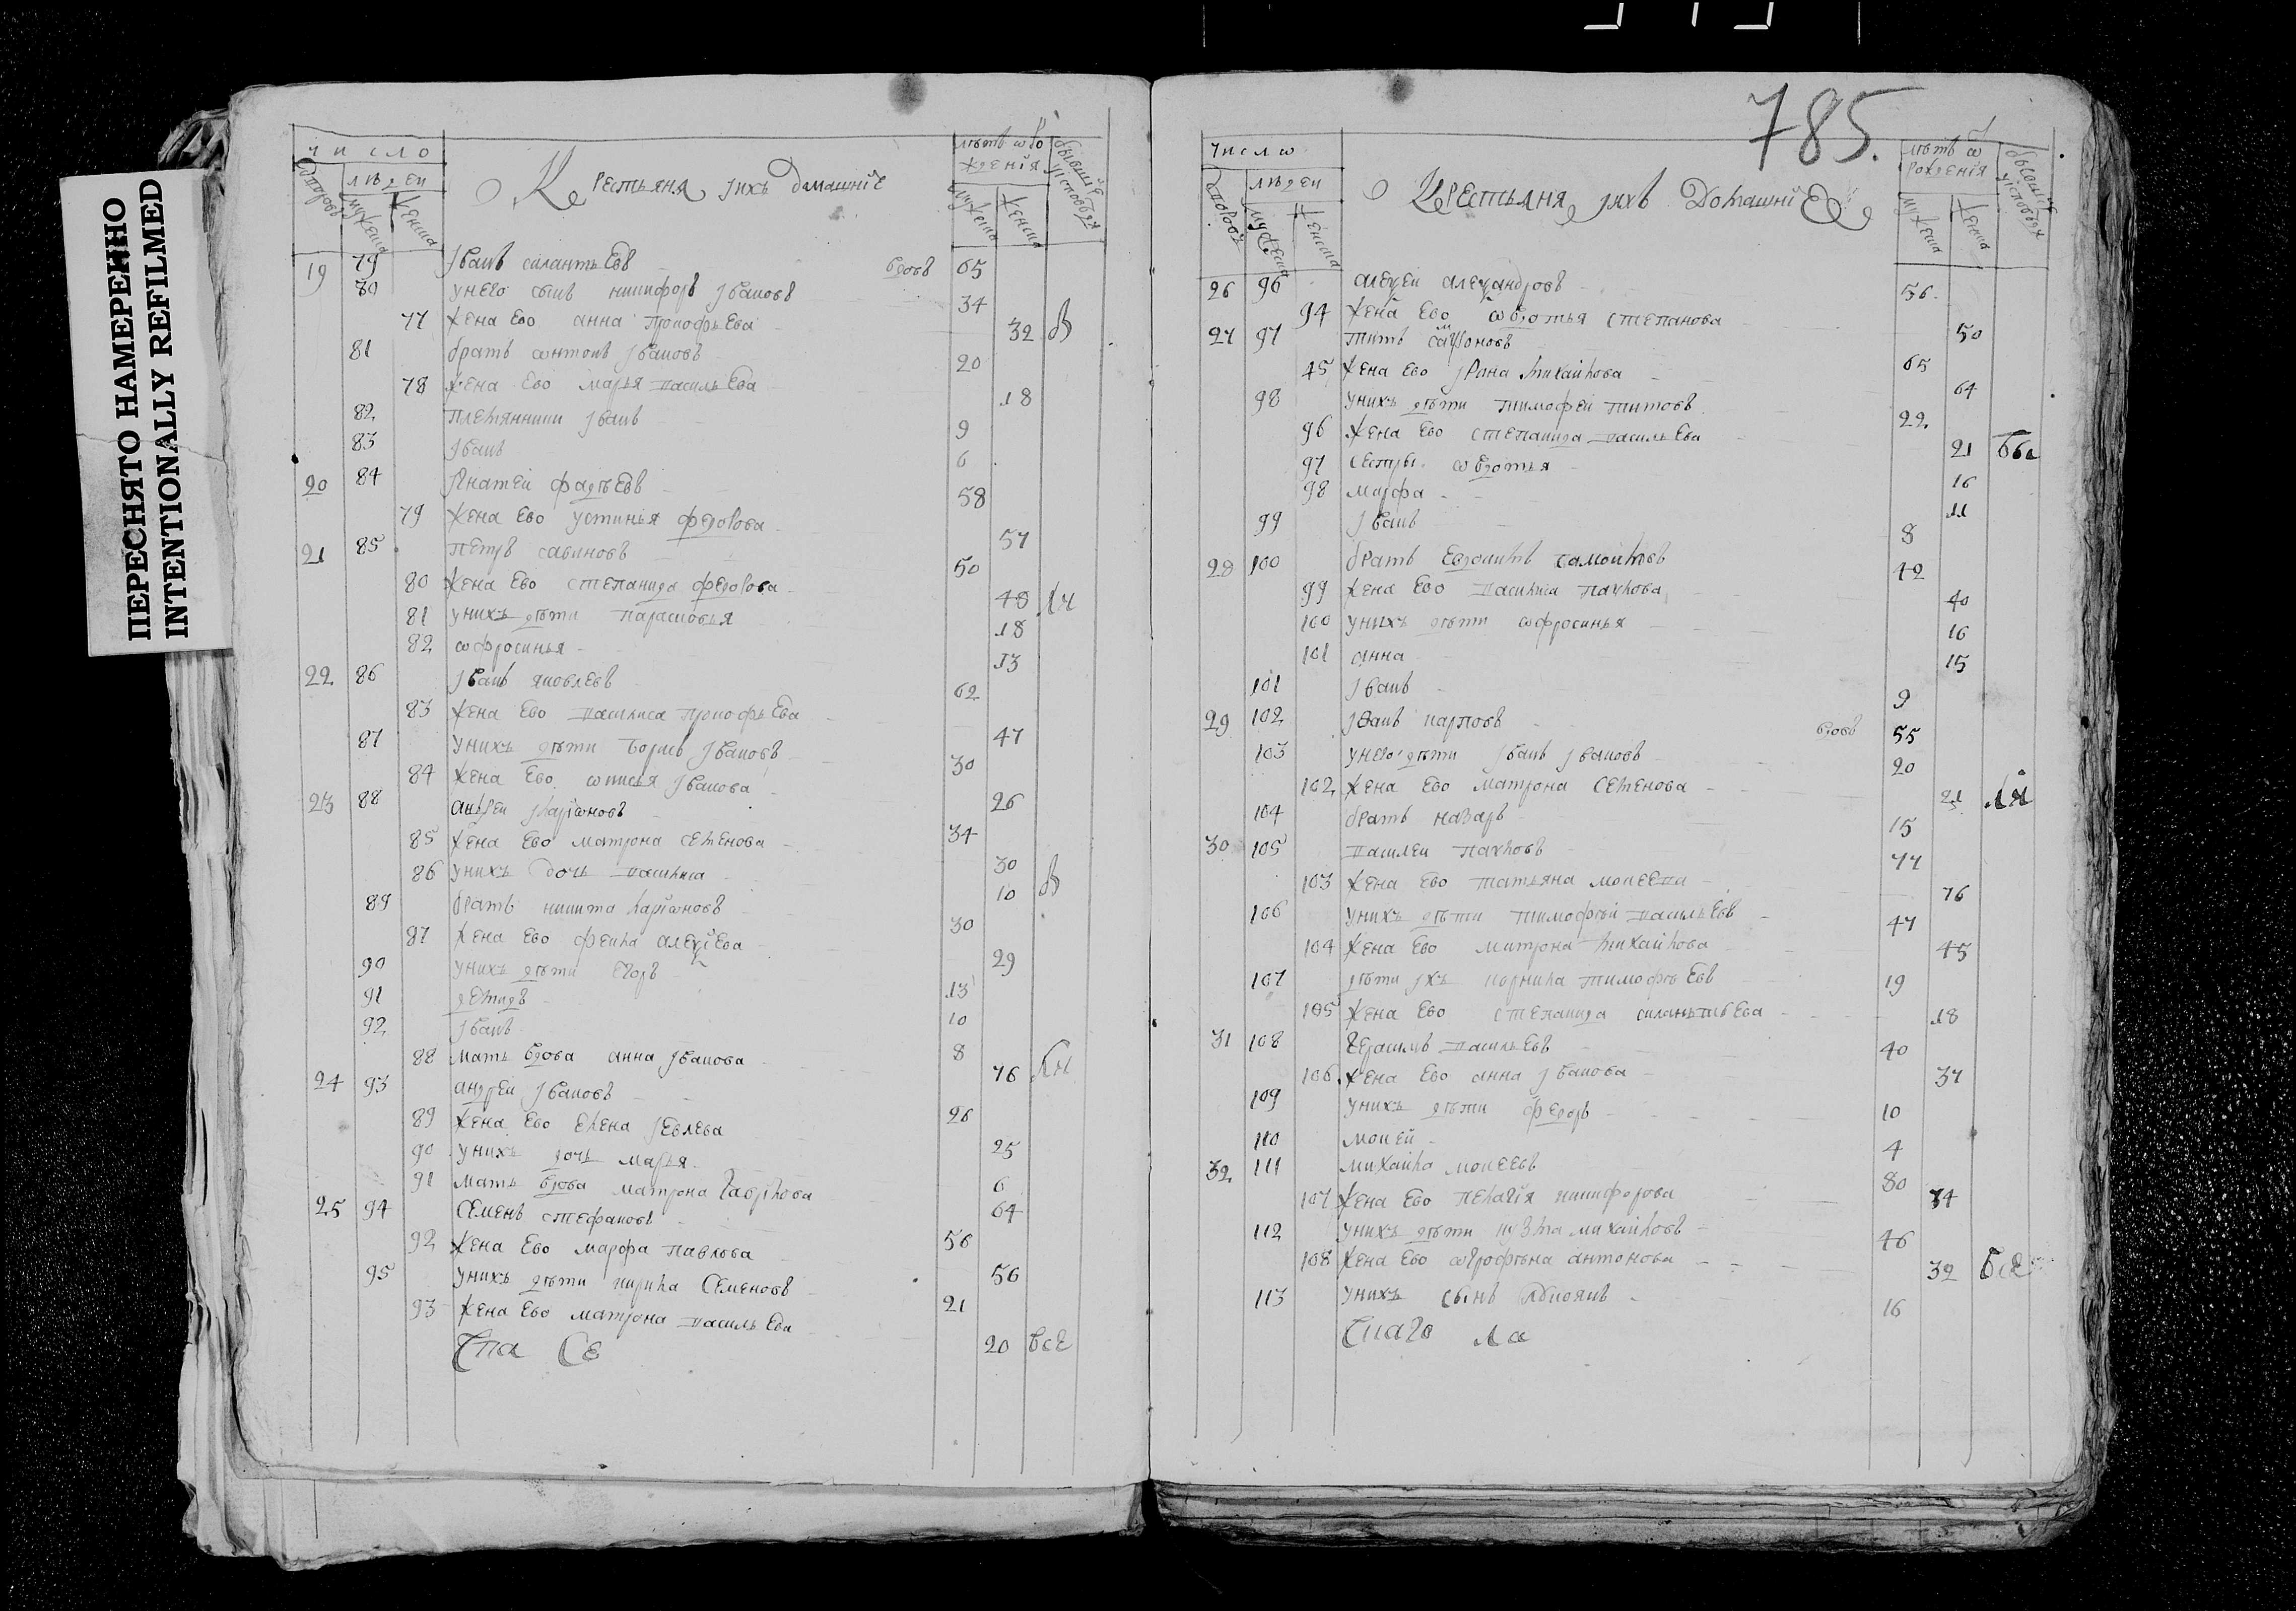 ПЕРЕСНЯТО НАМЕРЕННО
INTENTIONALLY REFILMED
785.
число
людеи
Крестьяня ихъ домашнiе
лѣтъ ѿ рождения
19 79 Iванъ силантьевъ вдовъ 65
80 унего сынъ никифоръ Iвановъ 34
77 жена ево анна прокофьева 32
81 братъ антонъ Iвановъ 20
78 жена ево марья васильева 18
82 племянники Iванъ 9
83 Iванъ 6
20 84 Игнатеи фадѣевъ 58
79 жена ево устинья федорова 57
21 85 петръ савиновъ 50
80 жена ево степанида федорова 48
81 унихъ дѣти парасковья 18
82 ѡфросинья 13
22 86 Iванъ яковлевъ 62
83 жена ево василиса прокофьева 47
87 унихъ дѣти борисъ Iвановъ 30
84 жена ево Iванова 26
23 88 андреи лариѡновъ 34
85 жена ево матрона семенова 30
86 унихъ дочь василиса 10
89 братъ никита лариѡновъ 30
87 жена ево фекла алексiева 29
90 унихъ дѣти егоръ 13
91 демидъ 10
92 Iванъ 8
88 мать вдова анна Iванова 76
24 93 андреи Iвановъ 26
89 жена ево елена Iевлева 25
90 унихъ дочь марья 6
91 мать вдова матрона гаврилова 64
25 94 семенъ стефановъ 56
92 жена ево марфа павлова 56
95 унихъ дѣти кирила семеновъ 21
93 жена ево матрона васильева 20 все
числѡ
людеи
Крестьяня ихъ Домашнiе
лѣтъ ѿ рождения
26 96 алексеи александровъ 56
94 жена ево ѡвдотья степанова 50
27 97 титъ самсоновъ 65
45 жена ево Iрина михаилова 64
98 унихъ дѣти тимофеи титовъ 22
96 жена ево степанида васильева 21
97 сестры ѡвдотья 16
98 марфа 11
99 Iванъ 8
28 100 братъ евдокимъ самоиловъ 42
99 жена ево василиса павлова 40
100 унихъ дѣти ѡфросинья 16
101 анна 15
101 Iванъ 9
29 102 Iванъ карповъ вдовъ 55
103 унего дѣти Iванъ Iвановъ 20
102 жена ево матрона семенова 21
104 братъ назаръ 15
30 105 василеи павловъ 77
103 жена ево татьяна мокеева 76
106 унихъ дѣти тимофѣи васильевъ 47
104 жена ево матрона михаилова 45
107 дѣти ихъ корнила тимофѣевъ 19
105 жена ево степанида силаньтьева 18
31 108 герасимъ васильевъ 40
106 жена ево анна Iванова 37
109 унихъ дѣти федоръ 10
110 мокей 4
32 111 михаила мокеевъ 80
107 жена ево пелагiя никифорова 74
112 унихъ дѣти кузма михаиловъ 46
108 жена ево антонова 32 все
113 унихъ сынъ 16